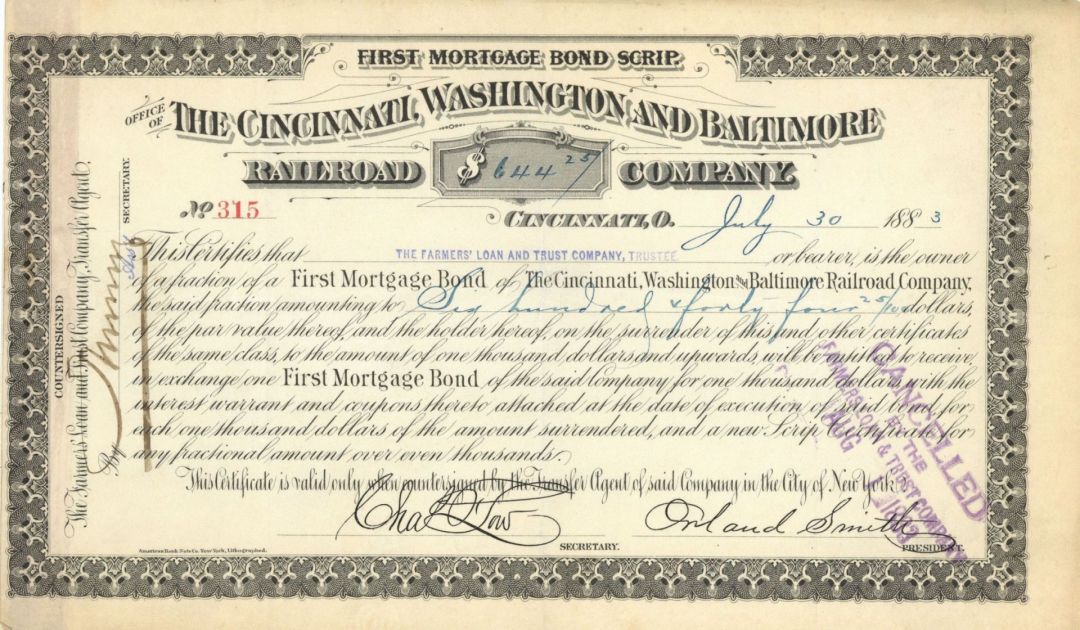 FIRST MORTGAGE BOND SCRIP.
OFFICE OF THE CINCINNATI, WASHINGTON AND BALTIMORE
RAILROAD $ 644 25/ COMPANY.
No 315
CINCINNATI, O. July 30 1883
This Certifies that THE FARMERS' LOAN AND TRUST COMPANY, TRUSTEE or bearer, is the owner
of a fraction of a First Mortgage Bond of The Cincinnati, Washington and Baltimore Railroad Company,
the said fraction amounting to Six hundred & forty four 25/100 dollars,
of the par value thereof, and the holder hereof, on the surrender of this and other certificates
of the same class, to the amount of one thousand dollars and upwards, will be entitled to receive
in exchange one First Mortgage Bond of the said Company for one thousand dollars, with the
interest warrant and coupons thereto attached at the date of execution of said bond, for
each one thousand dollars of the amount surrendered, and a new Scrip Certificate for
any fractional amount over even thousands.
This Certificate is valid only when countersigned by the Transfer Agent of said Company in the City of New York.
Orland Smith
SECRETARY.
PRESIDENT.
American Bank Note Co. New York, Lithographed.
COUNTERSIGNED
The Farmers' Loan and Trust Company, Transfer Agent.
By
SECRETARY.
CANCELLED
BY THE
FARMERS LOAN & TRUST COMPANY
AUG